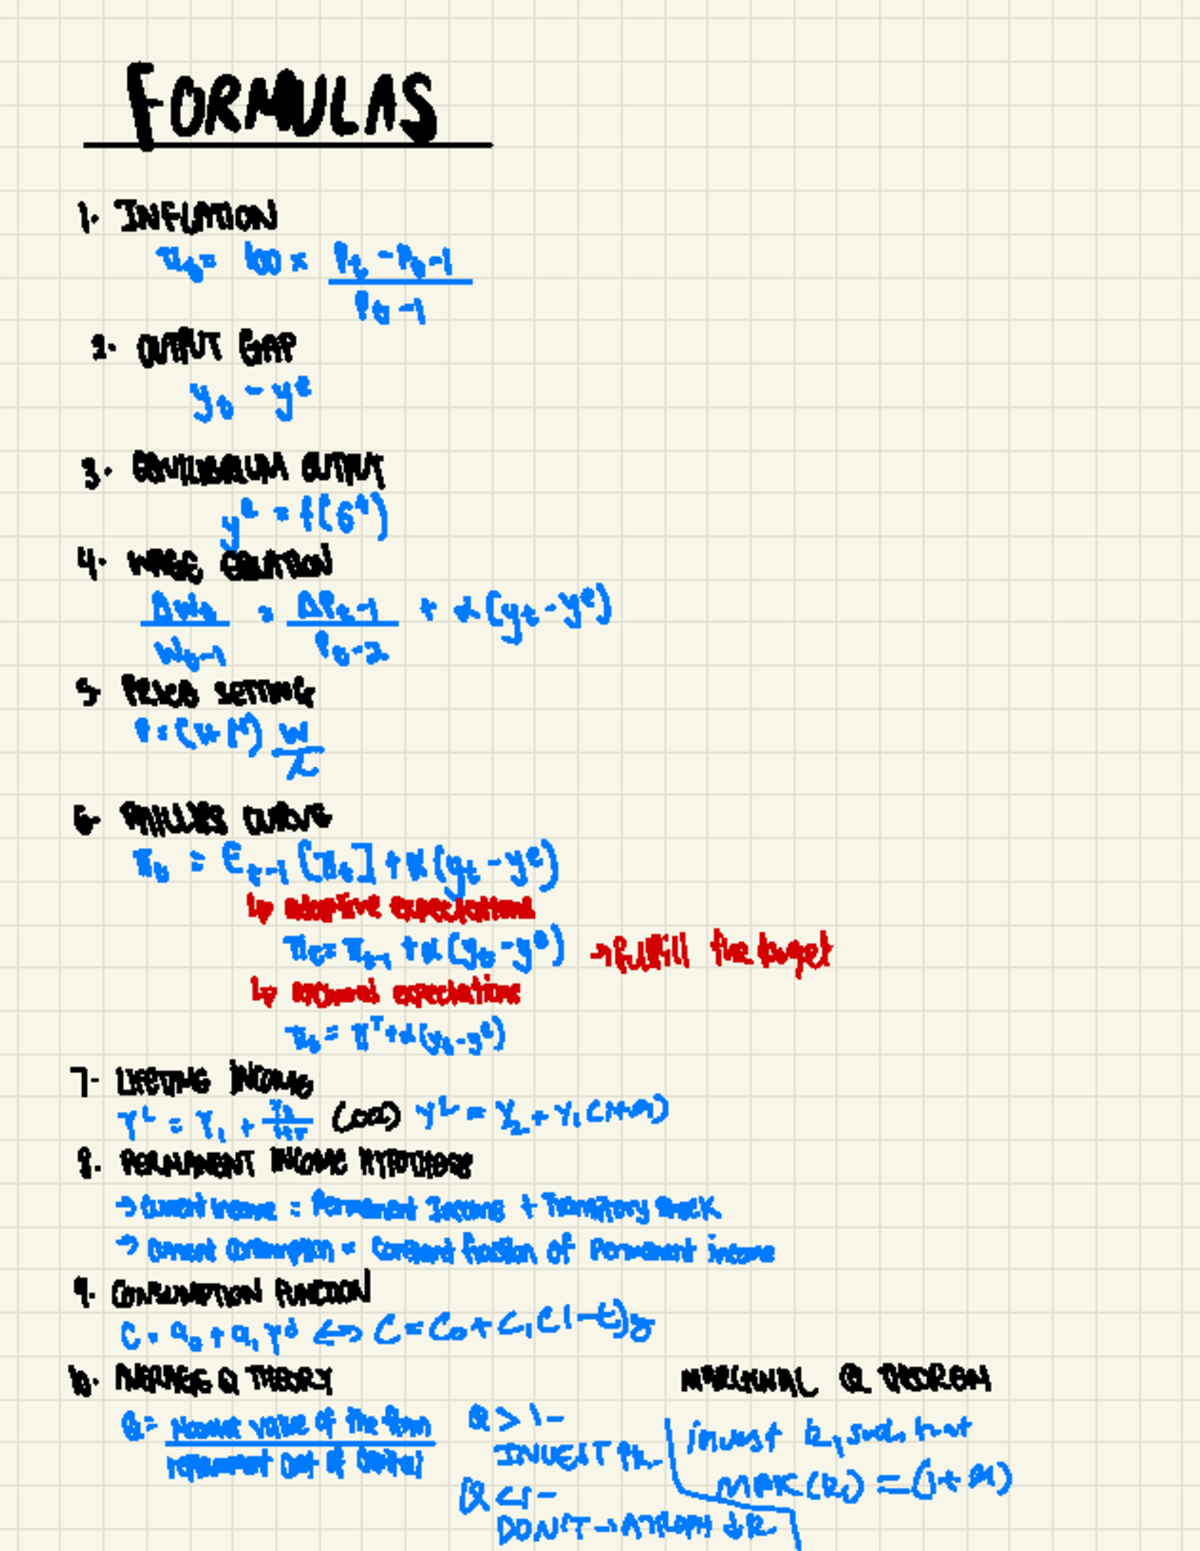 FORMULAS
1. INFLATION
π_t = 100 × (P_t - P_t-1) / (P_t-1)
2. OUTPUT GAP
y_t - y^e
3. EQUILIBRIUM OUTPUT
y^e = f( )
4. WAGE EQUATION
ΔW_t / W_t-1 = ΔP_t-1 / P_t-2 + α(y_t - y^e)
5. PRICE SETTING
P = (1+M) W/λ
6. PHILLIPS CURVE
π_t = E_t-1 [π_t] + α(y_t - y^e)
↳ adaptive expectations
π_t = π_t-1 + α(y_t - y^e) → fulfill the target
↳ rational expectations
π_t = π^T + α(y_t - y^e)
7. LIFETIME INCOME
Y^L = Y_1 + Y_2/(1+r) (OR) Y^L = Y_2 + Y_1(1+r)
8. PERMANENT INCOME HYPOTHESIS
→ Current income = Permanent Income + Transitory Shock
→ Current Consumption = Constant fraction of Permanent income
9. CONSUMPTION FUNCTION
C = a_0 + a_1 Y^d ⟺ C = C_0 + C_1(1-t)y
10. AVERAGE Q THEORY
Q = Market value of the firm / replacement cost of capital
Q > 1 -
INVEST ↑K
Q < 1 -
DON'T → ↓K
MARGINAL Q THEOREM
invest K, such that
MPK(K) = (1 + r)